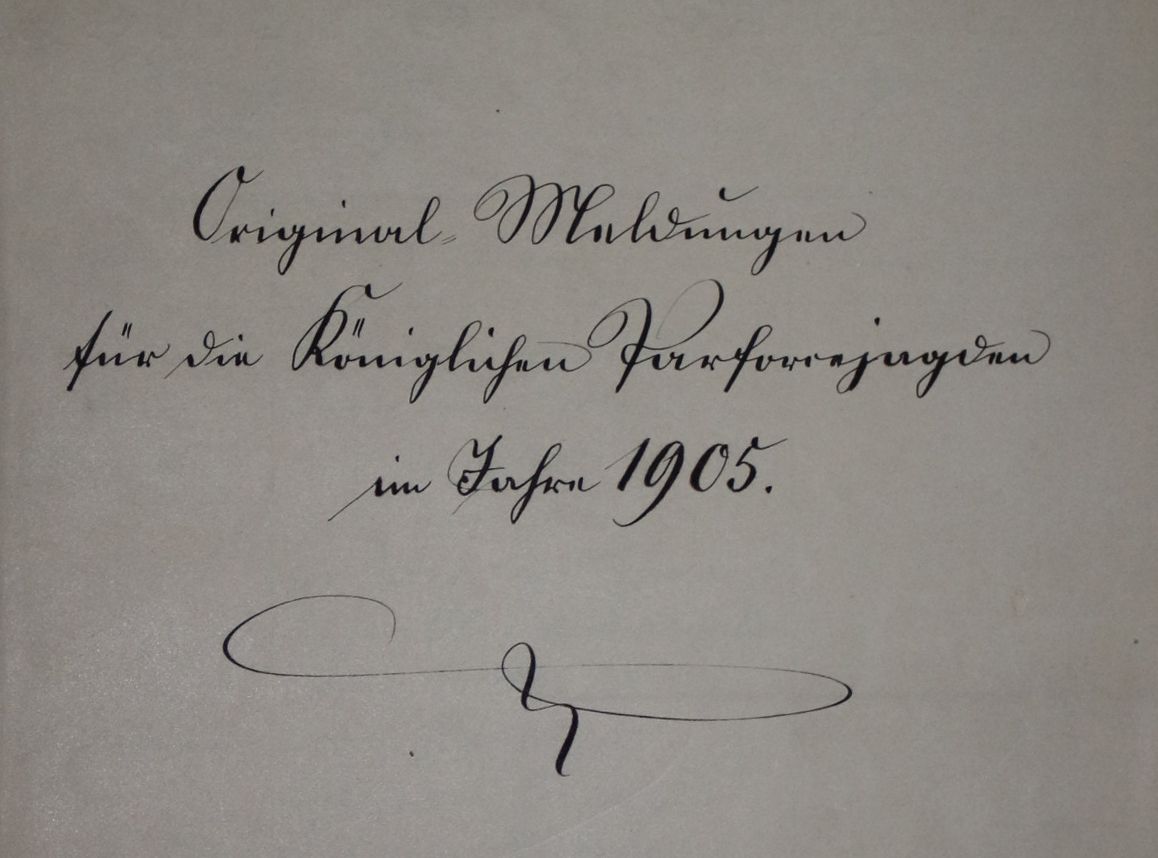 Original-Meldungen
für die Königlichen Parforcejagden
im Jahre 1905.